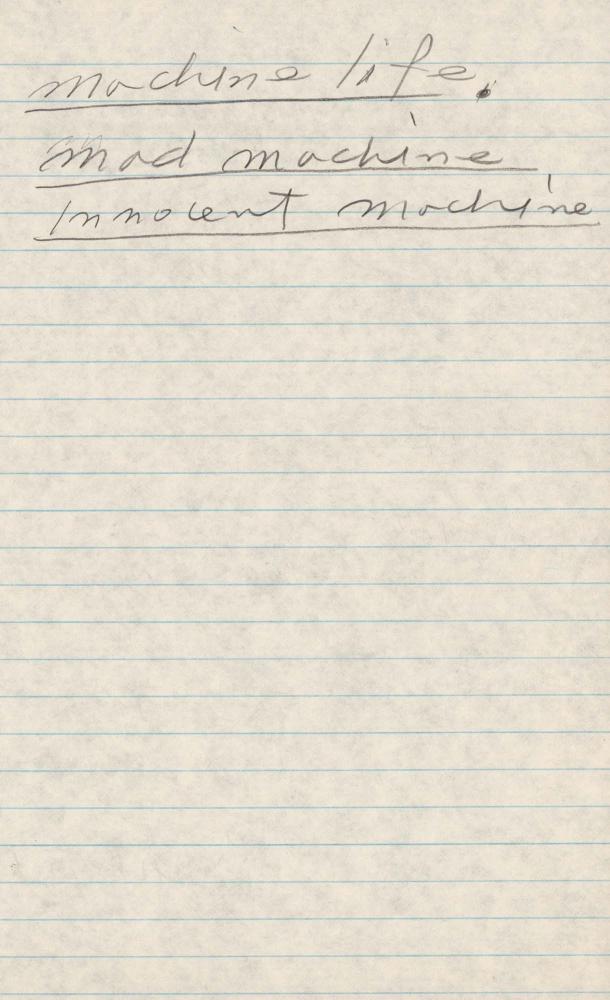 machine life.
mad machine
Innocent machine